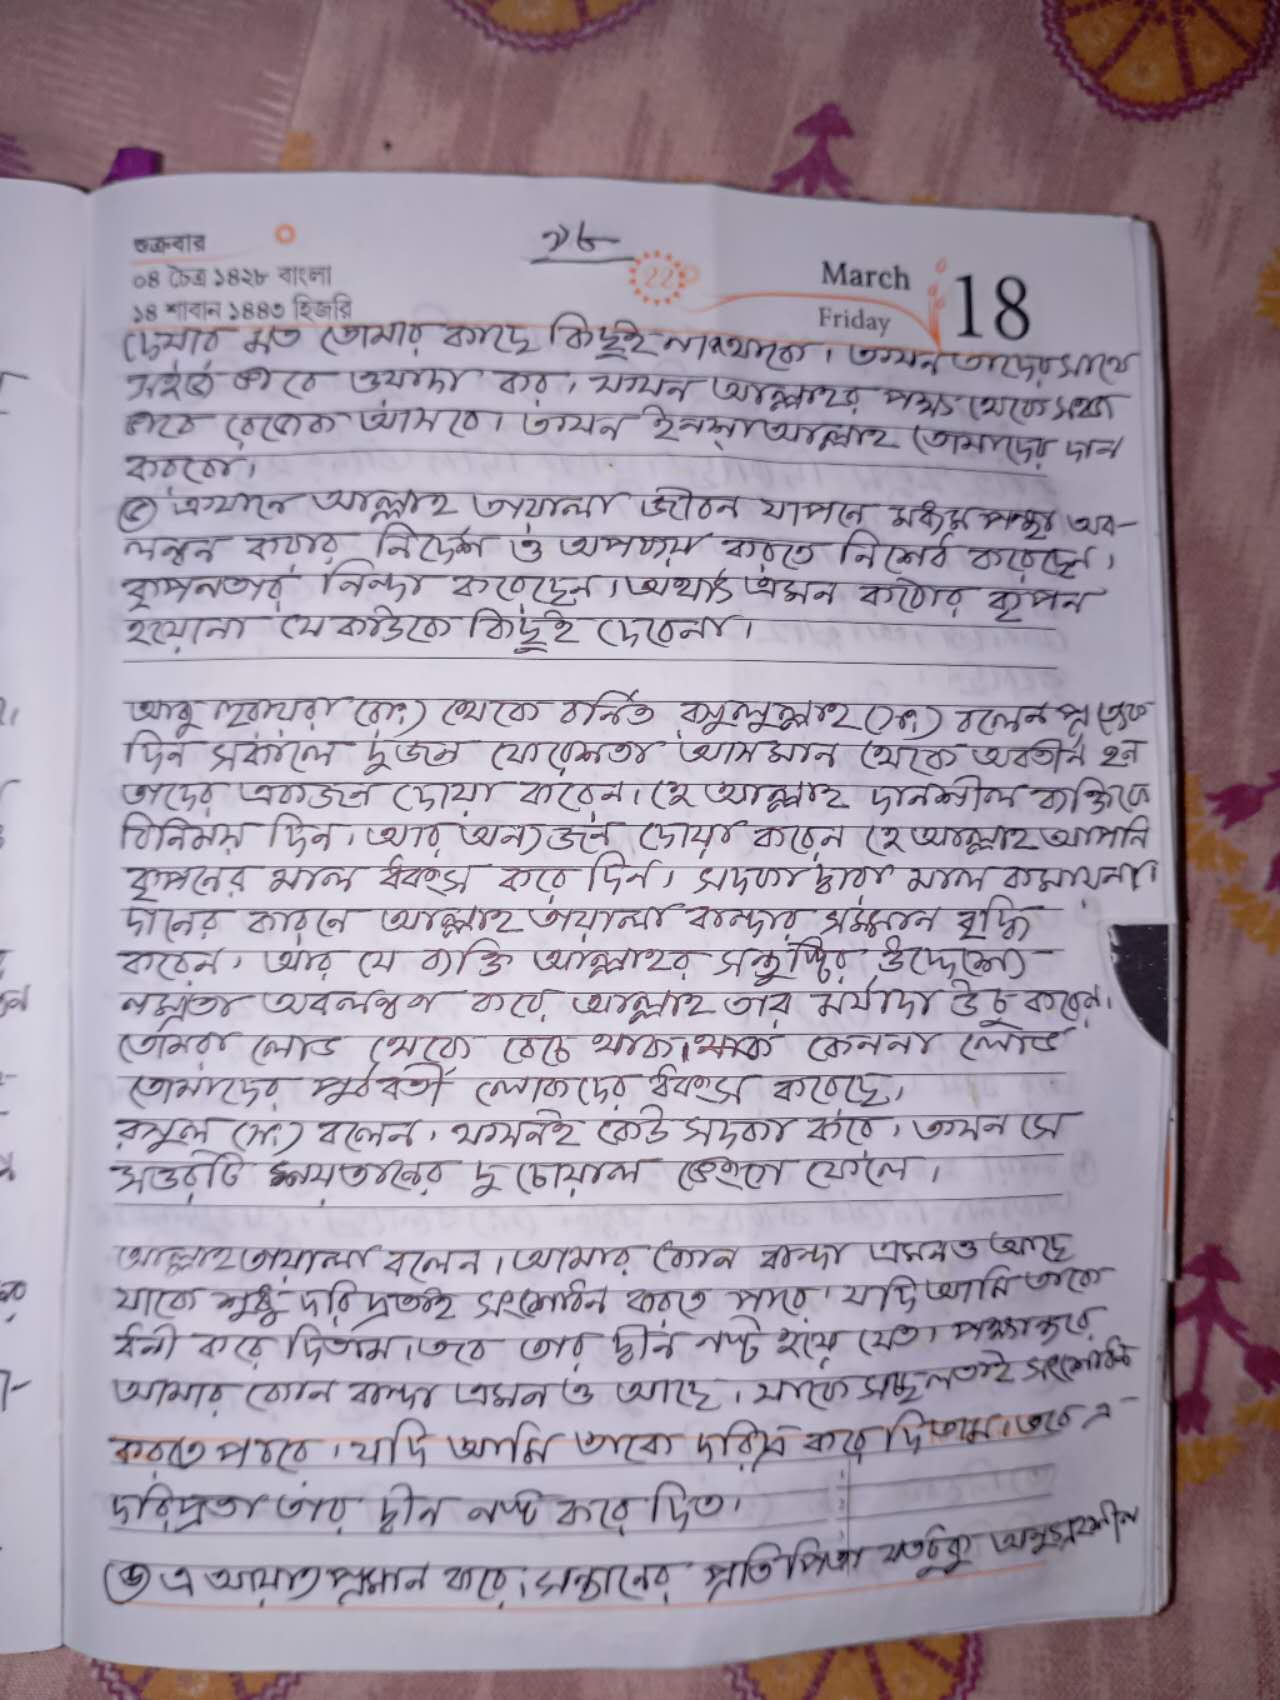 শুক্রবার
০৪ চৈত্র ১৪২৮ বাংলা
১৪ শাবান ১৪৪৩ হিজরি
১৮
22
March
Friday
18
দেয়ার মত তোমার কাছে কিছুই না থাকে। তখন তাদের সাথে
ভাবে ওয়াদা কর, যখন আল্লাহর পক্ষ থেকে
ভাবে রেজেক আসবে। তখন ইনশাআল্লাহ তোমাদের দান
করবো।
৫ এখানে আল্লাহ তায়ালা জীবন যাপনে মধ্যম পন্থা অব-
লম্বন করার নির্দেশ ও অপব্যয় করতে নিশেধ করেছেন,
কৃপনতার নিন্দা করেছেন। অর্থাৎ এমন কঠোর কৃপন
হয়োনা যে কাউকে কিছুই দেবেনা।
আবু হুরায়রা (রাঃ) থেকে বর্নিত রসুলুল্লাহ (সাঃ) বলেন প্রত্যেক
দিন সকালে দুজন ফেরেশতা আসমান থেকে অবতীর্ন হন
তাদের একজন দোয়া করেন। হে আল্লাহ দানশীল ব্যক্তিকে
বিনিময় দিন, আর অন্যজন দোয়া করেন হে আল্লাহ আপনি
কৃপনের মাল ধ্বংস করে দিন। সদকা দ্বারা মাল কমায়না।
দানের কারনে আল্লাহ তায়ালা বান্দার সম্মান বৃদ্ধি
করেন, আর যে ব্যক্তি আল্লাহর সন্তুষ্টির উদ্দেশ্যে
নম্রতা অবলম্বণ করে আল্লাহ তার মর্যাদা উচু করেন।
তোমরা লোভ থেকে বেচে থাক। কেননা লোভ
তোমাদের পূর্ববর্তী লোকদের ধ্বংস করেছে,
রসুল (সাঃ) বলেন, যখনই কেউ সদকা করে, তখন সে
সত্তরটি শয়তানের দু চোয়াল ভেংগে ফেলে।
আল্লাহ তায়ালা বলেন। আমার কোন বান্দা এমনও আছে
যাকে শুধু দরিদ্রতাই সংশোধন করতে পারে, যদি আমি তাকে
ধনী করে দিতাম। তবে তার দ্বীন নষ্ট হয়ে যেত। পক্ষান্তরে
আমার কোন বান্দা এমন ও আছে, যাকে সচ্ছলতাই সংশোধন
করতে পারে। যদি আমি তাকে দরিদ্র করে দিতাম। তবে এ-
দরিদ্রতা তার দ্বীন নষ্ট করে দিত।
৬ এ আয়াত প্রমান করে, সন্তানের প্রতি পিতা যতটুকু অনুগ্রহশীল